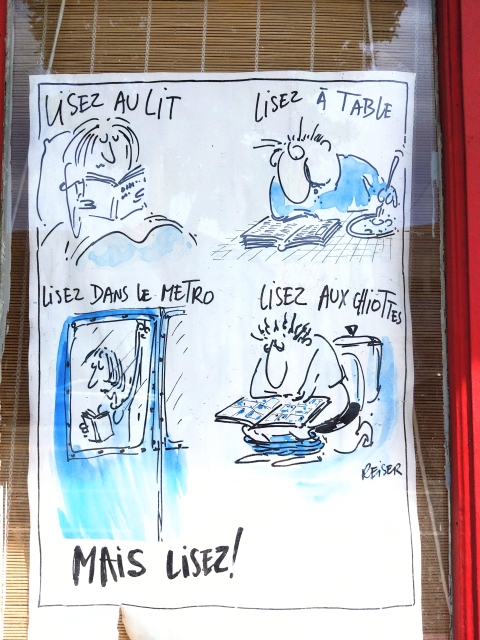 LISEZ AU LIT
LISEZ À TABLE
LISEZ DANS LE METRO
LISEZ AUX CHIOTTES
REISER
MAIS LISEZ!